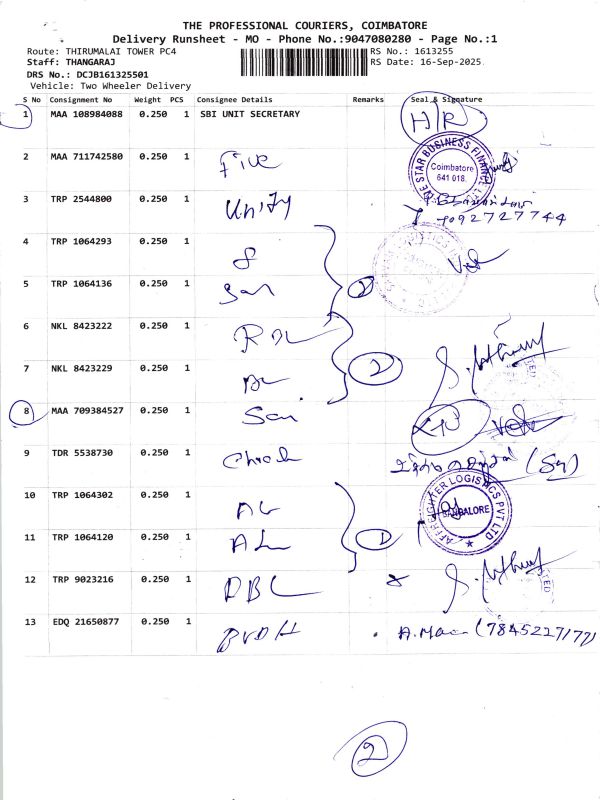 THE PROFESSIONAL COURIERS, COIMBATORE
Delivery Runsheet - MO - Phone No.:9047080280 - Page No.:1
Route: THIRUMALAI TOWER PC4 RS No.: 1613255
Staff: THANGARAJ RS Date: 16-Sep-2025
DRS No.: DCJB161325501
Vehicle: Two Wheeler Delivery
S No Consignment No Weight PCS Consignee Details Remarks Seal & Signature
1 MAA 108984088 0.250 1 SBI UNIT SECRETARY H/R
2 MAA 711742580 0.250 1 Five
STAR BUSINESS FINANCE
Coimbatore
641 018.
3 TRP 2544800 0.250 1 Unity
7092727744
4 TRP 1064293 0.250 1 8
5 TRP 1064136 0.250 1 San 2
6 NKL 8423222 0.250 1
7 NKL 8423229 0.250 1 2
8 MAA 709384527 0.250 1 San
9 TDR 5538730 0.250 1
10 TRP 1064302 0.250 1 AL
AFFREIGHTER LOGISTICS PVT LTD
BANGALORE
11 TRP 1064120 0.250 1 AL 1
12 TRP 9023216 0.250 1 DBL
13 EDQ 21650877 0.250 1 (7845227177)
2